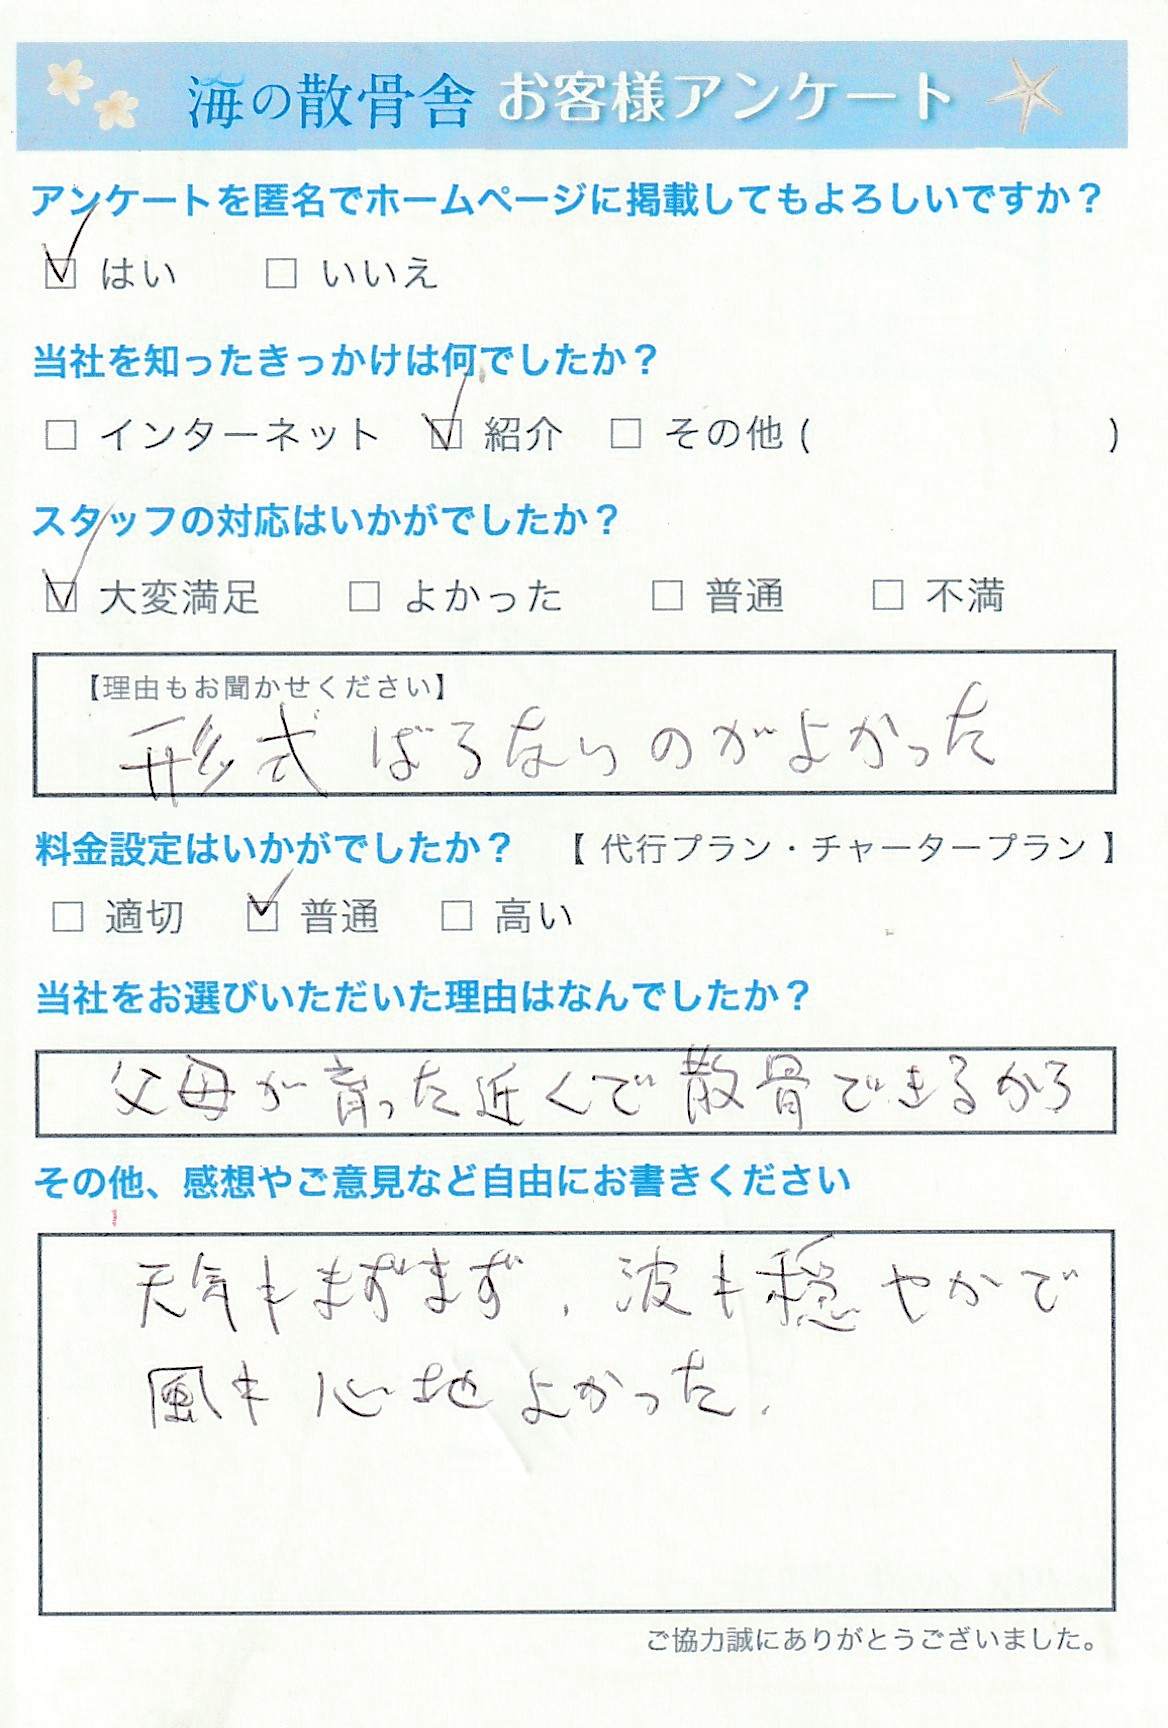 海の散骨舎 お客様アンケート
アンケートを匿名でホームページに掲載してもよろしいですか？
☑ はい □ いいえ
当社を知ったきっかけは何でしたか？
□ インターネット ☑ 紹介 □ その他 ( )
スタッフの対応はいかがでしたか？
☑ 大変満足 □ よかった □ 普通 □ 不満
【理由もお聞かせください】
形式ばらないのがよかった
料金設定はいかがでしたか？ 【 代行プラン・チャータープラン 】
□ 適切 ☑ 普通 □ 高い
当社をお選びいただいた理由はなんでしたか？
父母が育った近くで散骨できるから
その他、感想やご意見など自由にお書きください
天気もまずまず、波も穏やかで
風も心地よかった。
ご協力誠にありがとうございました。